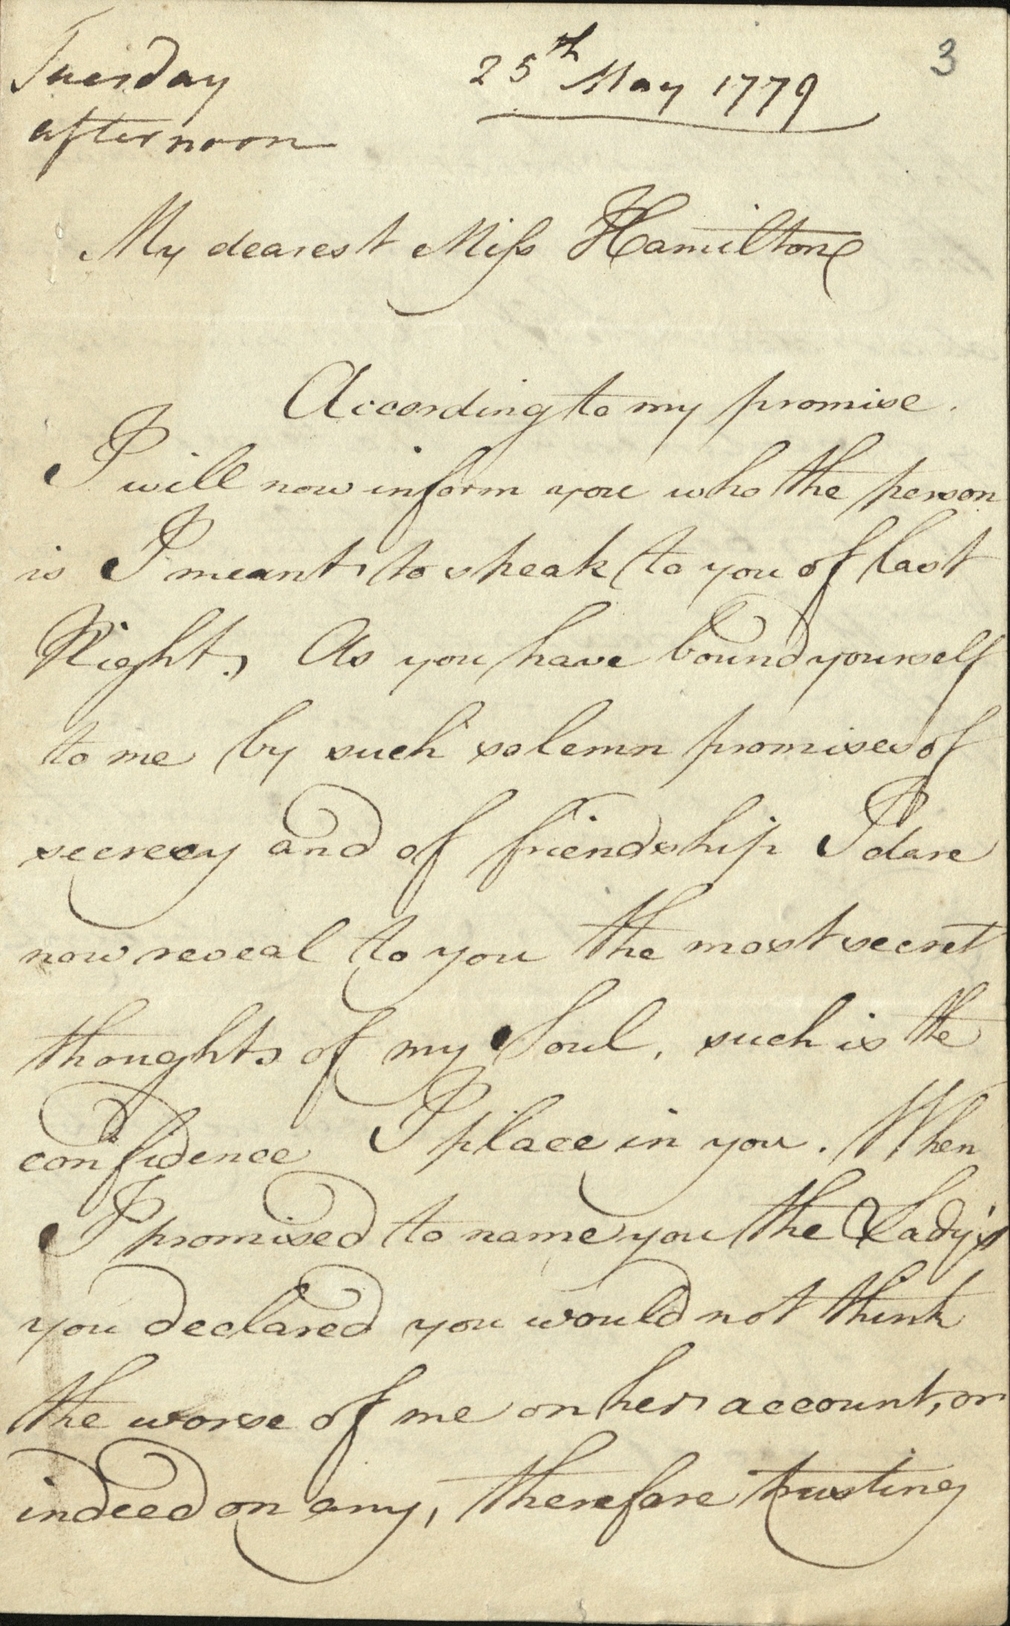 3
Tuesday 25th May 1779
afternoon
My dearest Miss Hamilton
According to my promise.
I will now inform you who the person
is I meant to speak to you of last
Night, As you have bound yourself
to me by such solemn promises of
secrecy and of friendship I dare
now reveal to you the most secret
thoughts of my Soul, such is the
confidence I place in you. When
I promised to name you the Lady's
you declared you would not think
the worse of me on her account, or
indeed on any, therefore trusting